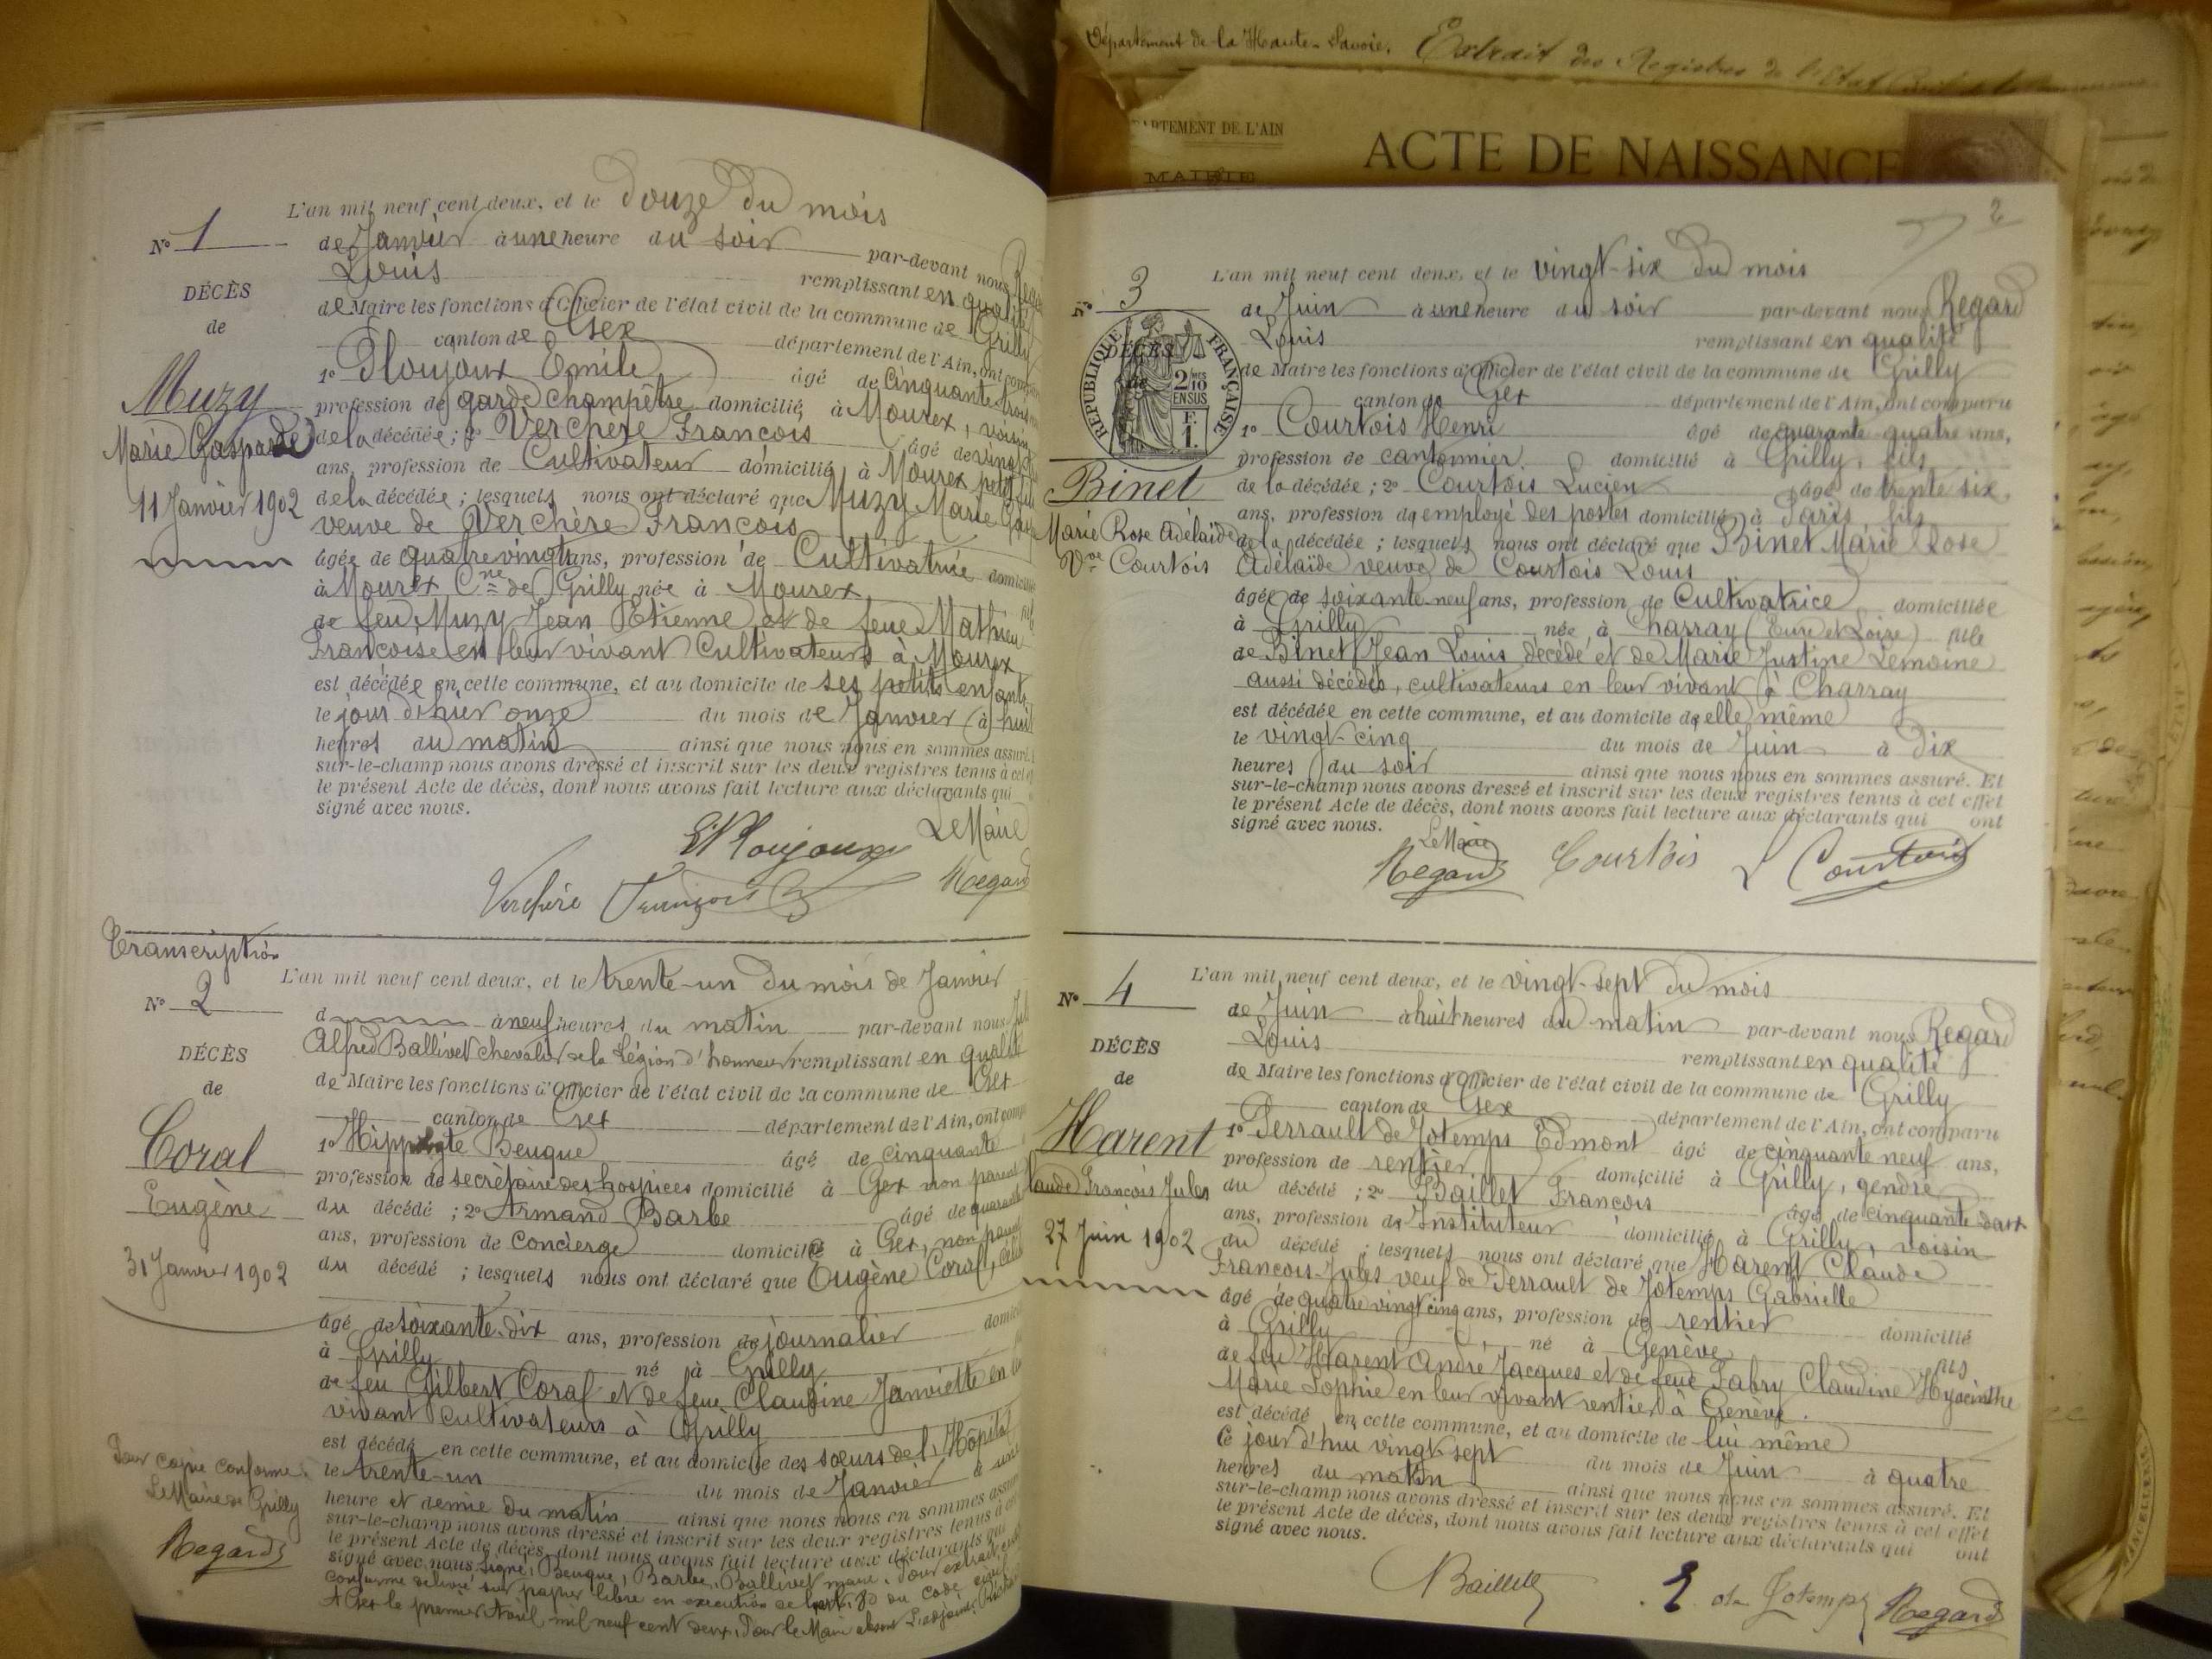 Département de la Haute-Savoie. Extrait des Registres de l'Etat Civil
DÉPARTEMENT DE L'AIN
MAIRIE
ACTE DE NAISSANCE
L'an mil neuf cent deux, et le douze du mois
N° 1
de Janvier à une heure du soir par-devant nous
Louis remplissant en qualité
DÉCÈS
de Maire les fonctions d'Officier de l'état civil de la commune de Grilly
de
canton de Gex département de l'Ain, ont
1° Ploujoux Emile âgé de Cinquante trois
Muzy
profession de garde champêtre domicilié à Mourex, voisin
Marie Gasparde
de la décédée ; 2° Verchère François âgé de vingt
ans, profession de Cultivateur domicilié à Mourex petit fils
11 Janvier 1902
de la décédée ; lesquels nous ont déclaré que Muzy Marie
veuve de Verchère François
âgée de quatre vingt ans, profession de Cultivatrice
à Mourex Cne de Grilly née à Mourex
de feu Muzy Jean Etienne et de feue Mathieu
Françoise en leur vivant Cultivateurs à Mourex
est décédée en cette commune, et au domicile de ses petits enfants
le jour d'hier onze du mois de Janvier à huit
heures du matin ainsi que nous nous en sommes assuré.
sur-le-champ nous avons dressé et inscrit sur les deux registres tenus à cet
le présent Acte de décès, dont nous avons fait lecture aux déclarants qui
signé avec nous.
E Ploujoux Le Maire
Verchère François Regard
Transcription
L'an mil neuf cent deux, et le trente-un du mois de Janvier
N° 2
d à neuf heures du matin par-devant nous
Alfred Ballivet chevalier de la Légion d'honneur remplissant en qualité
DÉCÈS
de Maire les fonctions d'Officier de l'état civil de la commune de Gex
de
canton de Gex département de l'Ain, ont
1° Hippolyte Beuque âgé de cinquante
Coral
profession de secrétaire des hospices domicilié à Gex non parent
Eugène
du décédé ; 2° Armand Barbe âgé de quarante
ans, profession de Concierge domicilié à Gex, non parent
31 Janvier 1902
du décédé ; lesquels nous ont déclaré que Eugène Coral,
âgé de soixante-dix ans, profession de journalier
à Grilly né à Grilly
de feu Gilbert Coral et de feue Claudine Janviette en
vivant cultivateurs à Grilly
est décédé en cette commune, et au domicile des sœurs de l'Hôpital
le trente-un du mois de Janvier à une
heure et demie du matin ainsi que nous nous en sommes
sur-le-champ nous avons dressé et inscrit sur les deux registres tenus à
le présent Acte de décès, dont nous avons fait lecture aux déclarants qui
signé avec nous. Signé, Beuque, Barbe, Ballivet maire. Pour extrait
conforme délivré sur papier libre en exécution de l'art. 80 du code civil
A Gex le premier Avril mil neuf cent deux. Pour le Maire absent L'adjoint,
Pour copie conforme
Le Maire de Grilly
Regard
2
L'an mil neuf cent deux, et le vingt-six du mois
N° 3
de Juin à une heure du soir par-devant nous Regard
Louis remplissant en qualité
RÉPUBLIQUE FRANÇAISE
2/10 MES EN SUS
F. 1.
DÉCÈS
de
de Maire les fonctions d'Officier de l'état civil de la commune de Grilly
canton de Gex département de l'Ain, ont comparu
1° Courtois Henri âgé de quarante quatre ans,
profession de cantonnier domicilié à Grilly, fils
Binet
de la décédée ; 2° Courtois Lucien âgé de trente six
ans, profession de employé des postes domicilié à Paris fils
Marie Rose Adélaïde
de la décédée ; lesquels nous ont déclaré que Binet Marie Rose
Vve Courtois
Adélaïde veuve de Courtois Louis
âgée de soixante-neuf ans, profession de Cultivatrice domiciliée
à Grilly née à Charray (Eure et Loire) fille
de Binet Jean Louis décédé et de Marie Justine Lemoine
aussi décédés, cultivateurs en leur vivant à Charray
est décédée en cette commune, et au domicile de elle même
le vingt-cinq du mois de Juin à dix
heures du soir ainsi que nous nous en sommes assuré. Et
sur-le-champ nous avons dressé et inscrit sur les deux registres tenus à cet effet
le présent Acte de décès, dont nous avons fait lecture aux déclarants qui ont
signé avec nous.
Le Maire
Regard Courtois L Courtois
L'an mil neuf cent deux, et le vingt-sept du mois
N° 4
de Juin à huit heures du matin par-devant nous Regard
Louis remplissant en qualité
DÉCÈS
de Maire les fonctions d'Officier de l'état civil de la commune de Grilly
de
canton de Gex département de l'Ain, ont comparu
Harent
1° Perrault de Jotemps Edmont âgé de cinquante neuf ans,
profession de rentier domicilié à Grilly, gendre
Claude François Jules
du décédé ; 2° Baillet François âgé de cinquante
ans, profession de Instituteur domicilié à Grilly, voisin
27 Juin 1902
du décédé ; lesquels nous ont déclaré que Harent Claude
François-Jules veuf de Perrault de Jotemps Gabrielle
âgé de quatre vingt cinq ans, profession de rentier domicilié
à Grilly, né à Genève fils
de feu Harent André Jacques et de feue Fabry Claudine Hyacinthe
Marie Sophie en leur vivant rentiers à Genève.
est décédé en cette commune, et au domicile de lui même
Ce jour d'hui vingt sept du mois de Juin à quatre
heures du matin ainsi que nous nous en sommes assuré. Et
sur-le-champ nous avons dressé et inscrit sur les deux registres tenus à cet effet
le présent Acte de décès, dont nous avons fait lecture aux déclarants qui ont
signé avec nous.
Baillet E de Jotemps Regard